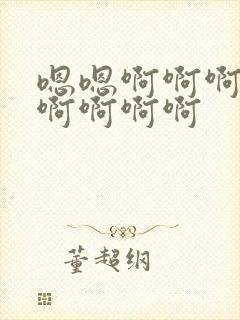 嗯嗯啊啊啊
啊啊啊啊
董超纲